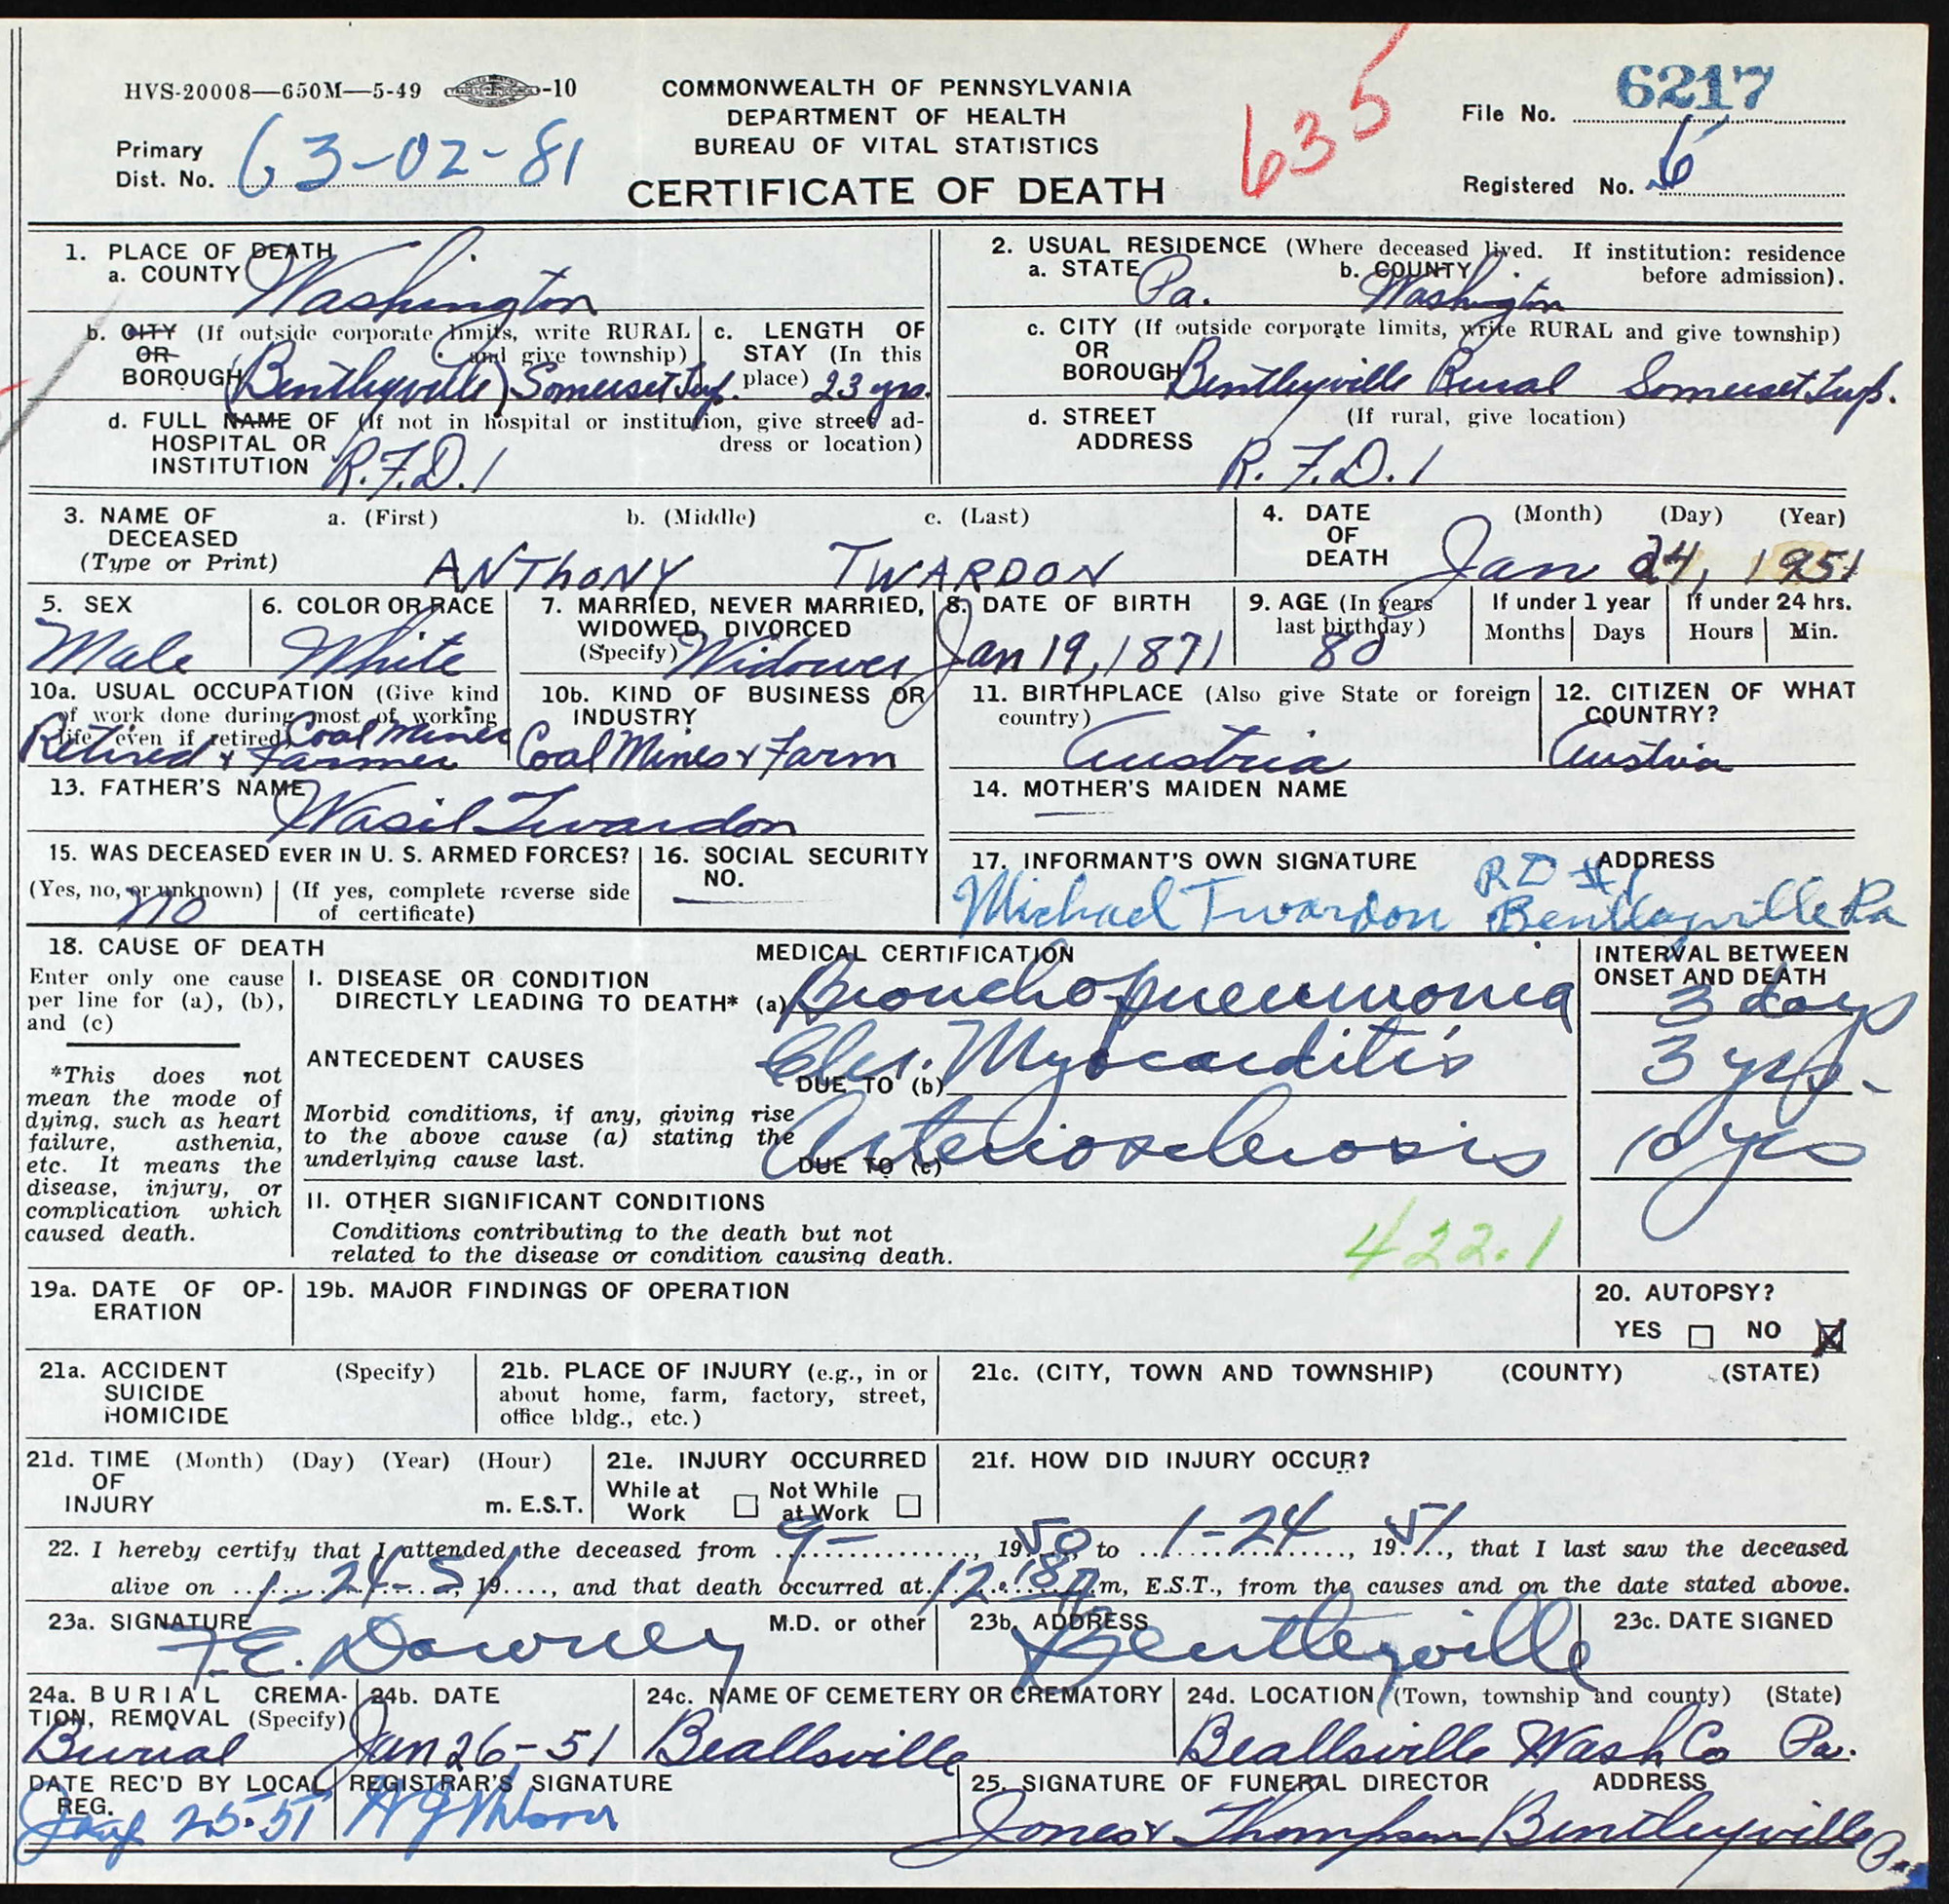 HVS-20008—650M—5-49 -10
COMMONWEALTH OF PENNSYLVANIA
DEPARTMENT OF HEALTH
BUREAU OF VITAL STATISTICS
CERTIFICATE OF DEATH
635
File No. 6217
Primary
Dist. No. 63-02-81
Registered No. 6
1. PLACE OF DEATH
a. COUNTY Washington
b. CITY (If outside corporate limits, write RURAL
OR and give township)
BOROUGH (Bentleyville) Somerset Twp.
c. LENGTH OF
STAY (In this
place) 23 yrs.
d. FULL NAME OF (If not in hospital or institution, give street ad-
HOSPITAL OR dress or location)
INSTITUTION R.F.D.1
2. USUAL RESIDENCE (Where deceased lived. If institution: residence
before admission).
a. STATE Pa. b. COUNTY Washington
c. CITY (If outside corporate limits, write RURAL and give township)
OR
BOROUGH Bentleyville Rural Somerset Twp.
d. STREET (If rural, give location)
ADDRESS R.F.D.1
3. NAME OF a. (First) b. (Middle) c. (Last)
DECEASED
(Type or Print) ANTHONY TWARDON
4. DATE (Month) (Day) (Year)
OF
DEATH Jan 24, 1951
5. SEX
Male
6. COLOR OR RACE
White
7. MARRIED, NEVER MARRIED,
WIDOWED, DIVORCED
(Specify) Widower
8. DATE OF BIRTH
Jan 19, 1871
9. AGE (In years
last birthday)
80
If under 1 year
Months Days
If under 24 hrs.
Hours Min.
10a. USUAL OCCUPATION (Give kind
of work done during most of working
life, even if retired) Coal Miner
Retired & Farmer
10b. KIND OF BUSINESS OR
INDUSTRY
Coal Mines & Farm
11. BIRTHPLACE (Also give State or foreign
country)
Austria
12. CITIZEN OF WHAT
COUNTRY?
Austria
13. FATHER'S NAME
Wasil Twardon
14. MOTHER'S MAIDEN NAME
15. WAS DECEASED EVER IN U. S. ARMED FORCES?
(Yes, no, or unknown) (If yes, complete reverse side
of certificate)
no
16. SOCIAL SECURITY
NO.
17. INFORMANT'S OWN SIGNATURE ADDRESS
RD #1
Michael Twardon Bentleyville Pa
18. CAUSE OF DEATH
Enter only one cause
per line for (a), (b),
and (c)
*This does not
mean the mode of
dying, such as heart
failure, asthenia,
etc. It means the
disease, injury, or
complication which
caused death.
MEDICAL CERTIFICATION
INTERVAL BETWEEN
ONSET AND DEATH
I. DISEASE OR CONDITION
DIRECTLY LEADING TO DEATH* (a) Bronchopneumonia 3 days
ANTECEDENT CAUSES
DUE TO (b) Chr. Myocarditis 3 yrs.
Morbid conditions, if any, giving rise
to the above cause (a) stating the
underlying cause last.
DUE TO (c) Arteriosclerosis 10 yrs
II. OTHER SIGNIFICANT CONDITIONS
Conditions contributing to the death but not
related to the disease or condition causing death.
422.1
19a. DATE OF OP-
ERATION
19b. MAJOR FINDINGS OF OPERATION
20. AUTOPSY?
YES NO X
21a. ACCIDENT (Specify)
SUICIDE
HOMICIDE
21b. PLACE OF INJURY (e.g., in or
about home, farm, factory, street,
office bldg., etc.)
21c. (CITY, TOWN AND TOWNSHIP) (COUNTY) (STATE)
21d. TIME (Month) (Day) (Year) (Hour)
OF
INJURY m. E.S.T.
21e. INJURY OCCURRED
While at Not While
Work at Work
21f. HOW DID INJURY OCCUR?
22. I hereby certify that I attended the deceased from 9-, 1950, to 1-24, 1951, that I last saw the deceased
alive on 1-24-51, 19...., and that death occurred at m, E.S.T., from the causes and on the date stated above.
23a. SIGNATURE M.D. or other
F.E. Downey
23b. ADDRESS
Bentleyville
23c. DATE SIGNED
24a. BURIAL CREMA-
TION, REMOVAL (Specify)
Burial
24b. DATE
Jan 26-51
24c. NAME OF CEMETERY OR CREMATORY
Beallsville
24d. LOCATION (Town, township and county) (State)
Beallsville Wash Co Pa.
DATE REC'D BY LOCAL
REG.
Jany 25-51
REGISTRAR'S SIGNATURE
25. SIGNATURE OF FUNERAL DIRECTOR ADDRESS
Jones & Thompson Bentleyville Pa.